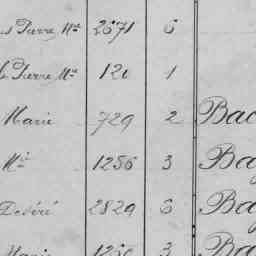 Pierre Mie 2671 6
Pierre Mie 120 1
Marie 729 2 Bac
Mie 1256 3 Ba
Désiré 2829 6 Ba
Marie 3 Ba